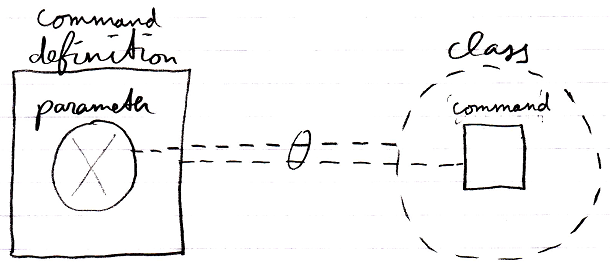 command
definition
parameter
class
command